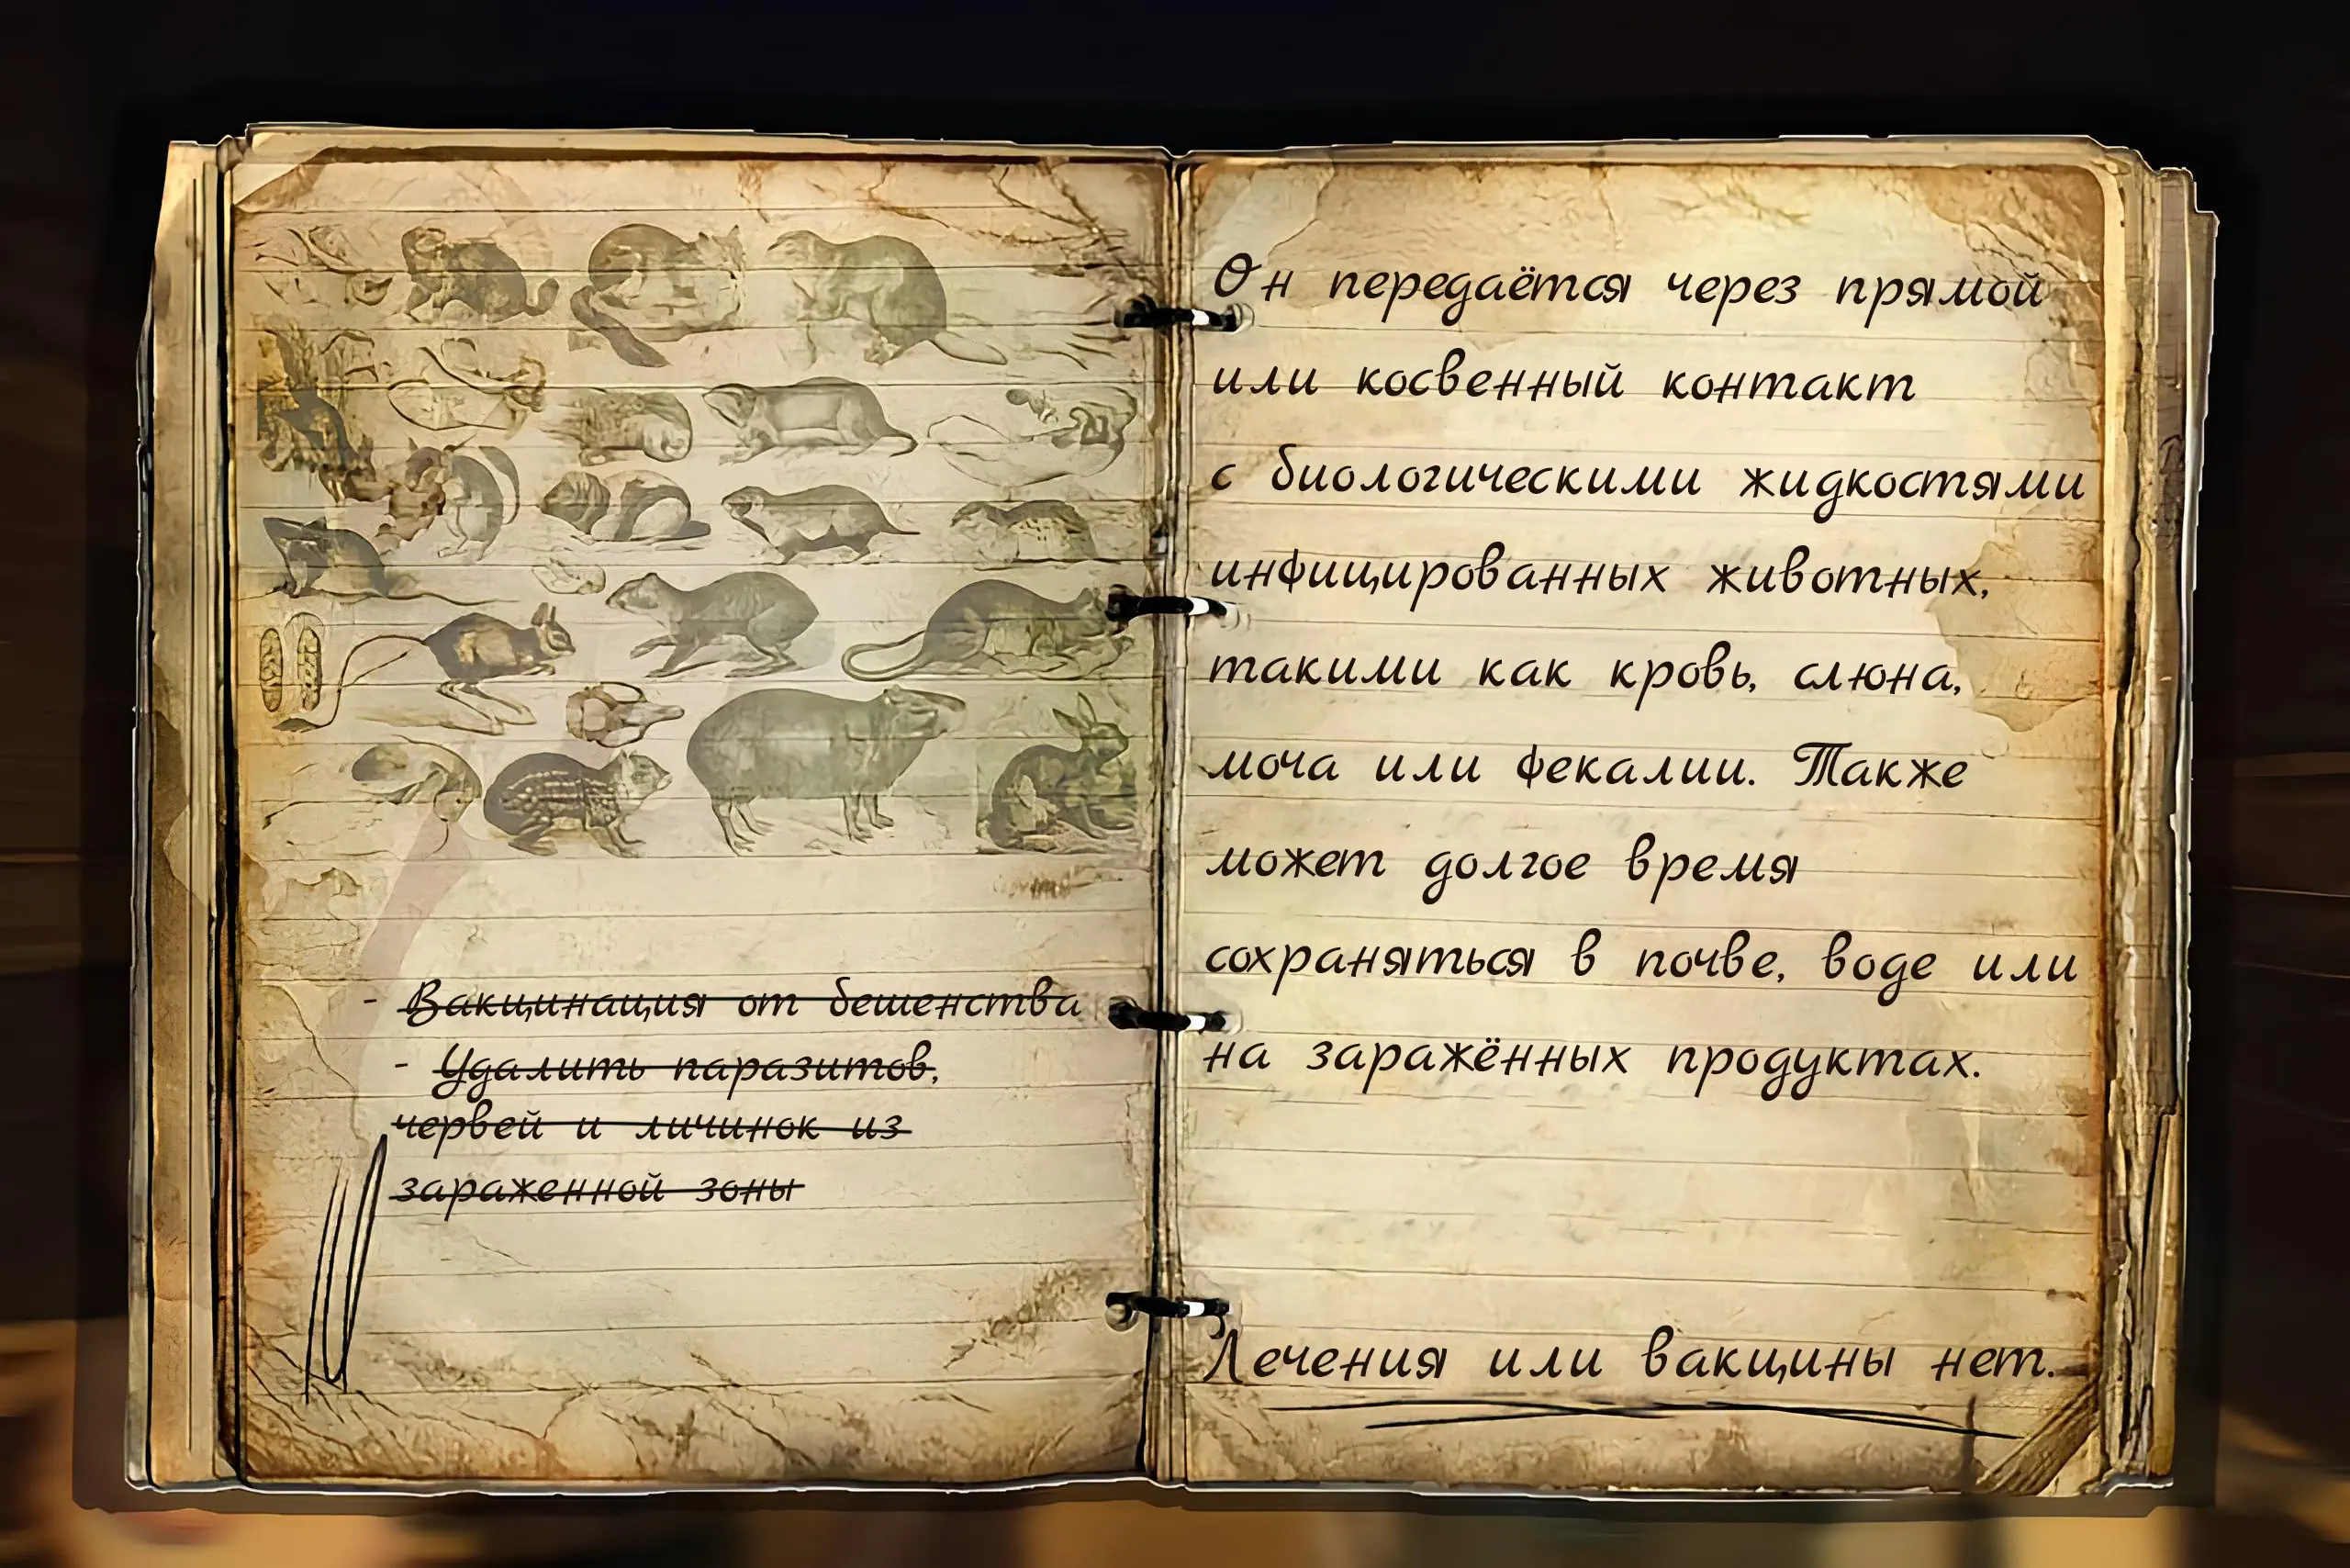 - Вакцинация от бешенства
- Удалить паразитов,
червей и личинок из
зараженной зоны
Он передаётся через прямой
или косвенный контакт
с биологическими жидкостями
инфицированных животных,
такими как кровь, слюна,
моча или фекалии. Также
может долгое время
сохраняться в почве, воде или
на заражённых продуктах.
Лечения или вакцины нет.